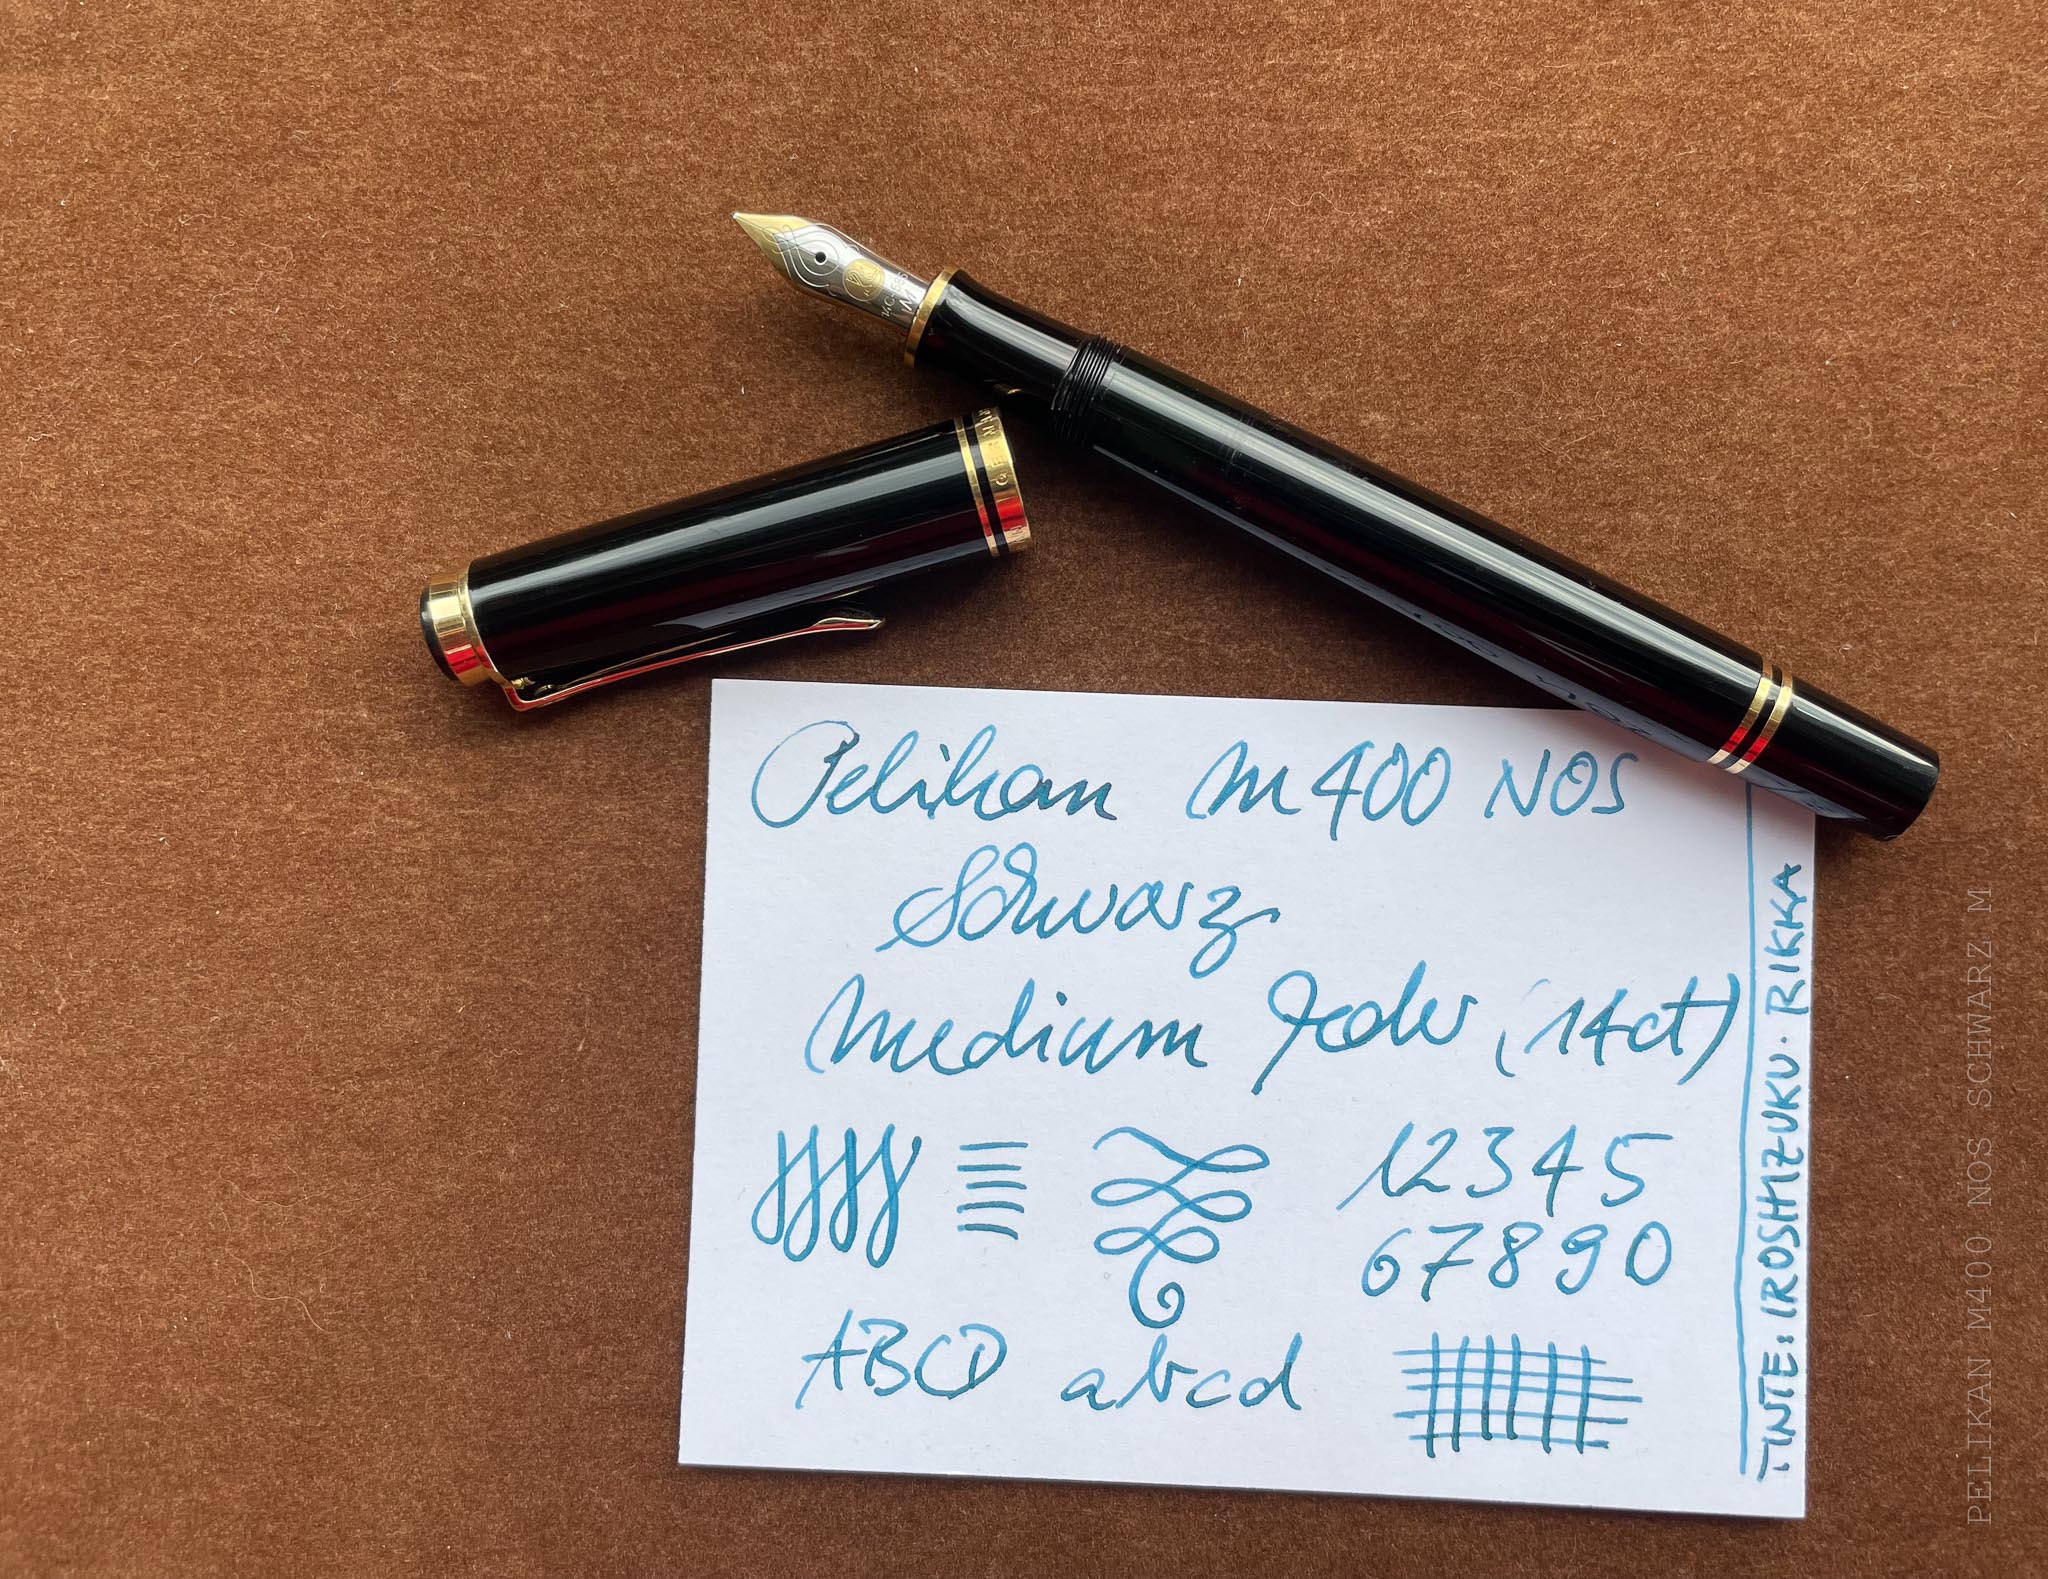 14C-585
M
GERMANY
Pelikan M400 NOS
Schwarz
Medium Feder (14ct)
12345
67890
ABCD abcd
TINTE: IROSHIZUKU · RIKKA
PELIKAN M400 NOS SCHWARZ M